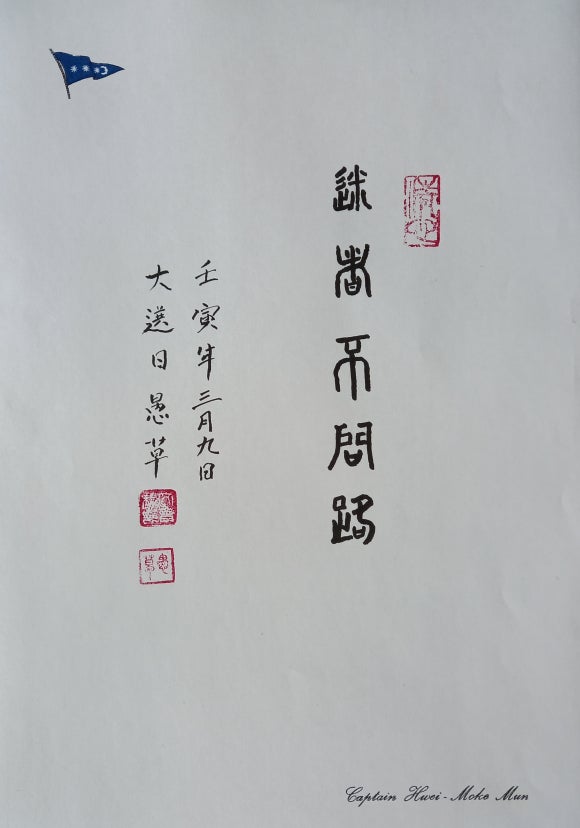 迷者不問路
壬寅年三月九日
大選日愚草
愚草
Captain Hwei-Moke Mun